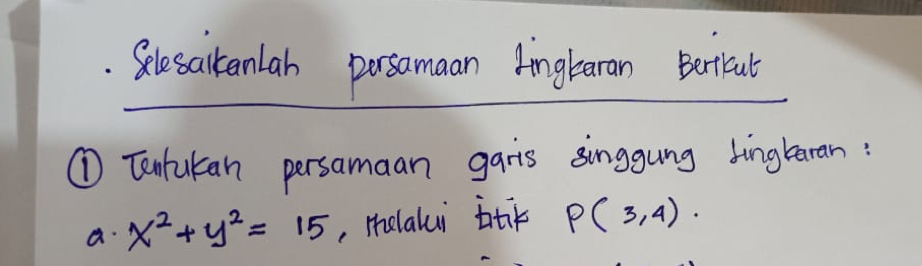 . Selesaikanlah persamaan lingkaran Berikut
① Tentukan persamaan garis singgung lingkaran :
a. x² + y² = 15, Melalui titik P( 3,4) .